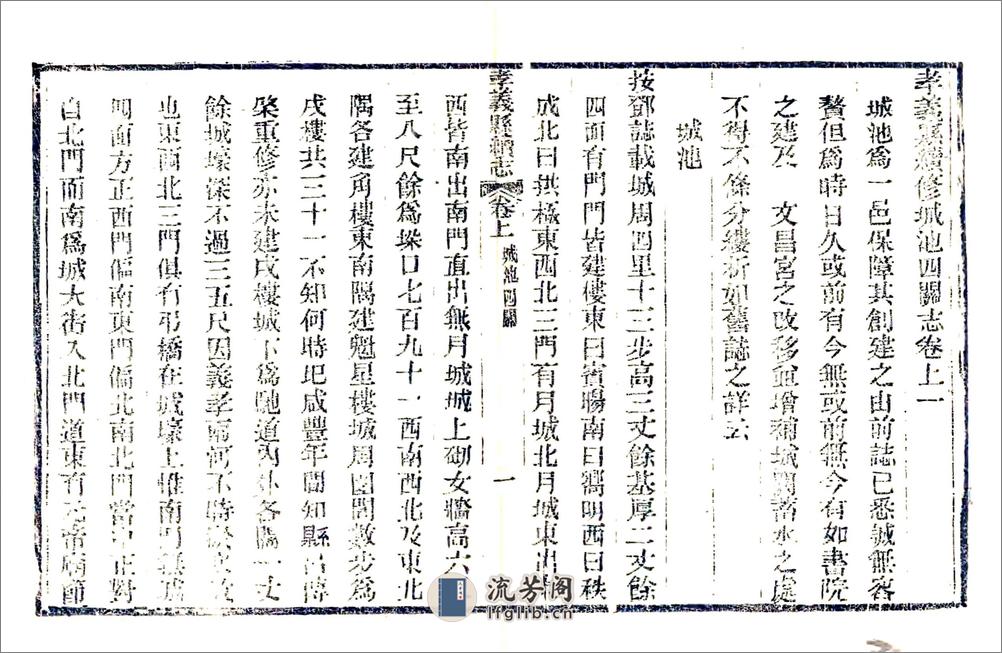 孝義縣續修城池四關志卷上一
城池爲一邑保障其創建之由前誌已悉誠無容
贅但爲時日久或前有今無或前無今有如書院
之建及　文昌宮之改移並增補城關蓄水之處
不得不條分縷析如舊誌之詳云
城池
按鄧誌載城周四里十三步高三丈餘基厚二丈餘
四面有門門皆建樓東曰賓暘南曰嚮明西曰秩
成北曰拱極東西北三門有月城北月城東出
孝義縣續志 卷上 城池四關 一
西皆南出南門直出無月城城上砌女牆高六
至八尺餘爲垛口七百九十一西南西北及東北
隅各建角樓東南隅建魁星樓城周圍間數步爲
戍樓共三十一不知何時圮咸豐年間知縣
棨重修亦未建戍樓城下爲馳道內外各闊一丈
餘城壕深不過三五尺因義孝兩河不時
也東西北三門俱有吊橋在城壕上惟南門無
四面方正西門偏南東門偏北南北門當中正對
自北門而南爲城大街入北門道東有元帝廟節
流芳阁
lfglib.cn